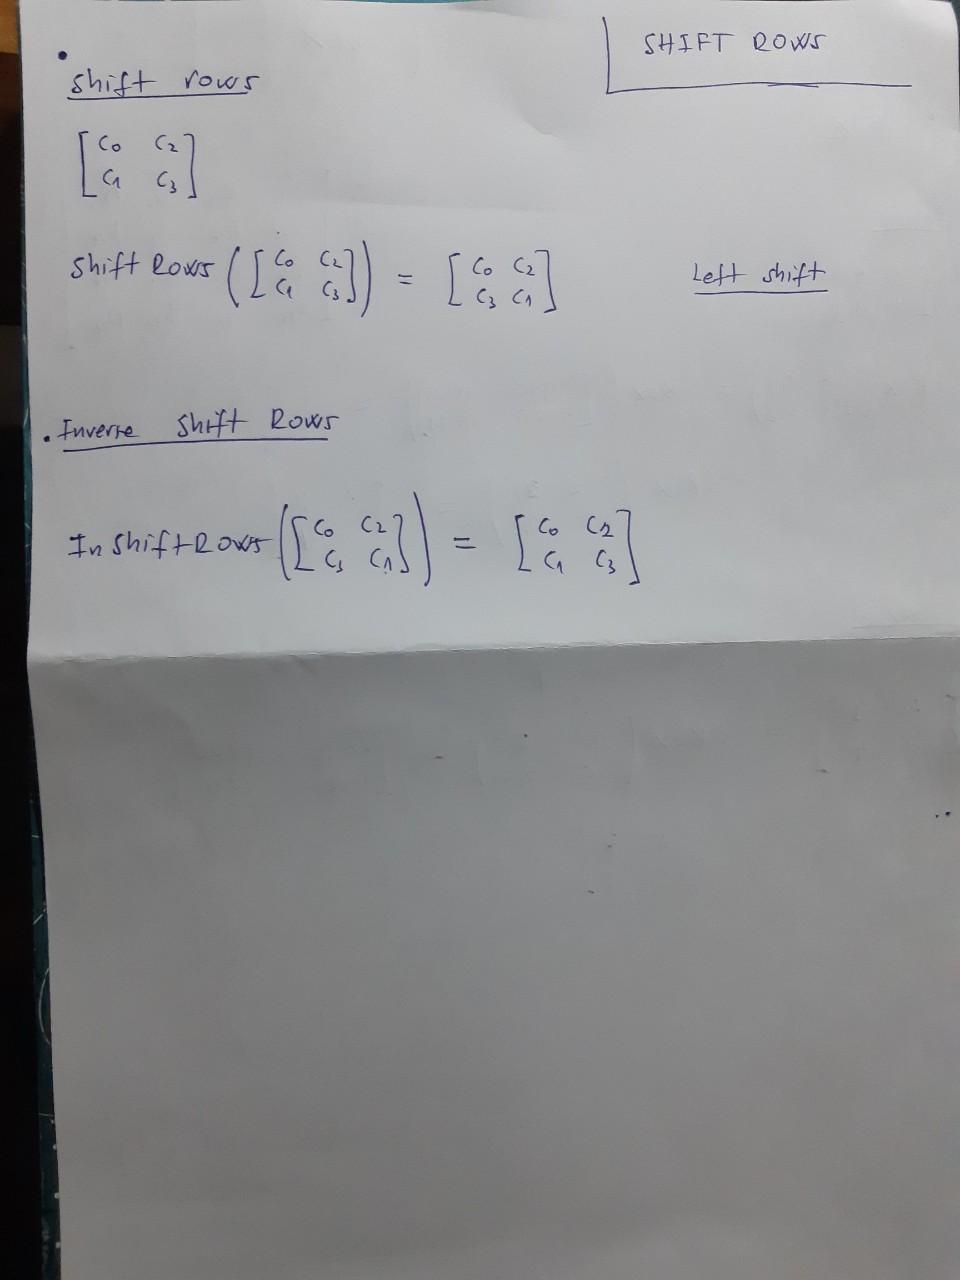 SHIFT ROWS
Shift rows
[C0 C2
C1 C3]
Shift Rows ([C0 C2
C1 C3]) = [C0 C2
C3 C1]
Left shift
Inverse Shift Rows
In Shift Rows ([C0 C2
C3 C1]) = [C0 C2
C1 C3]